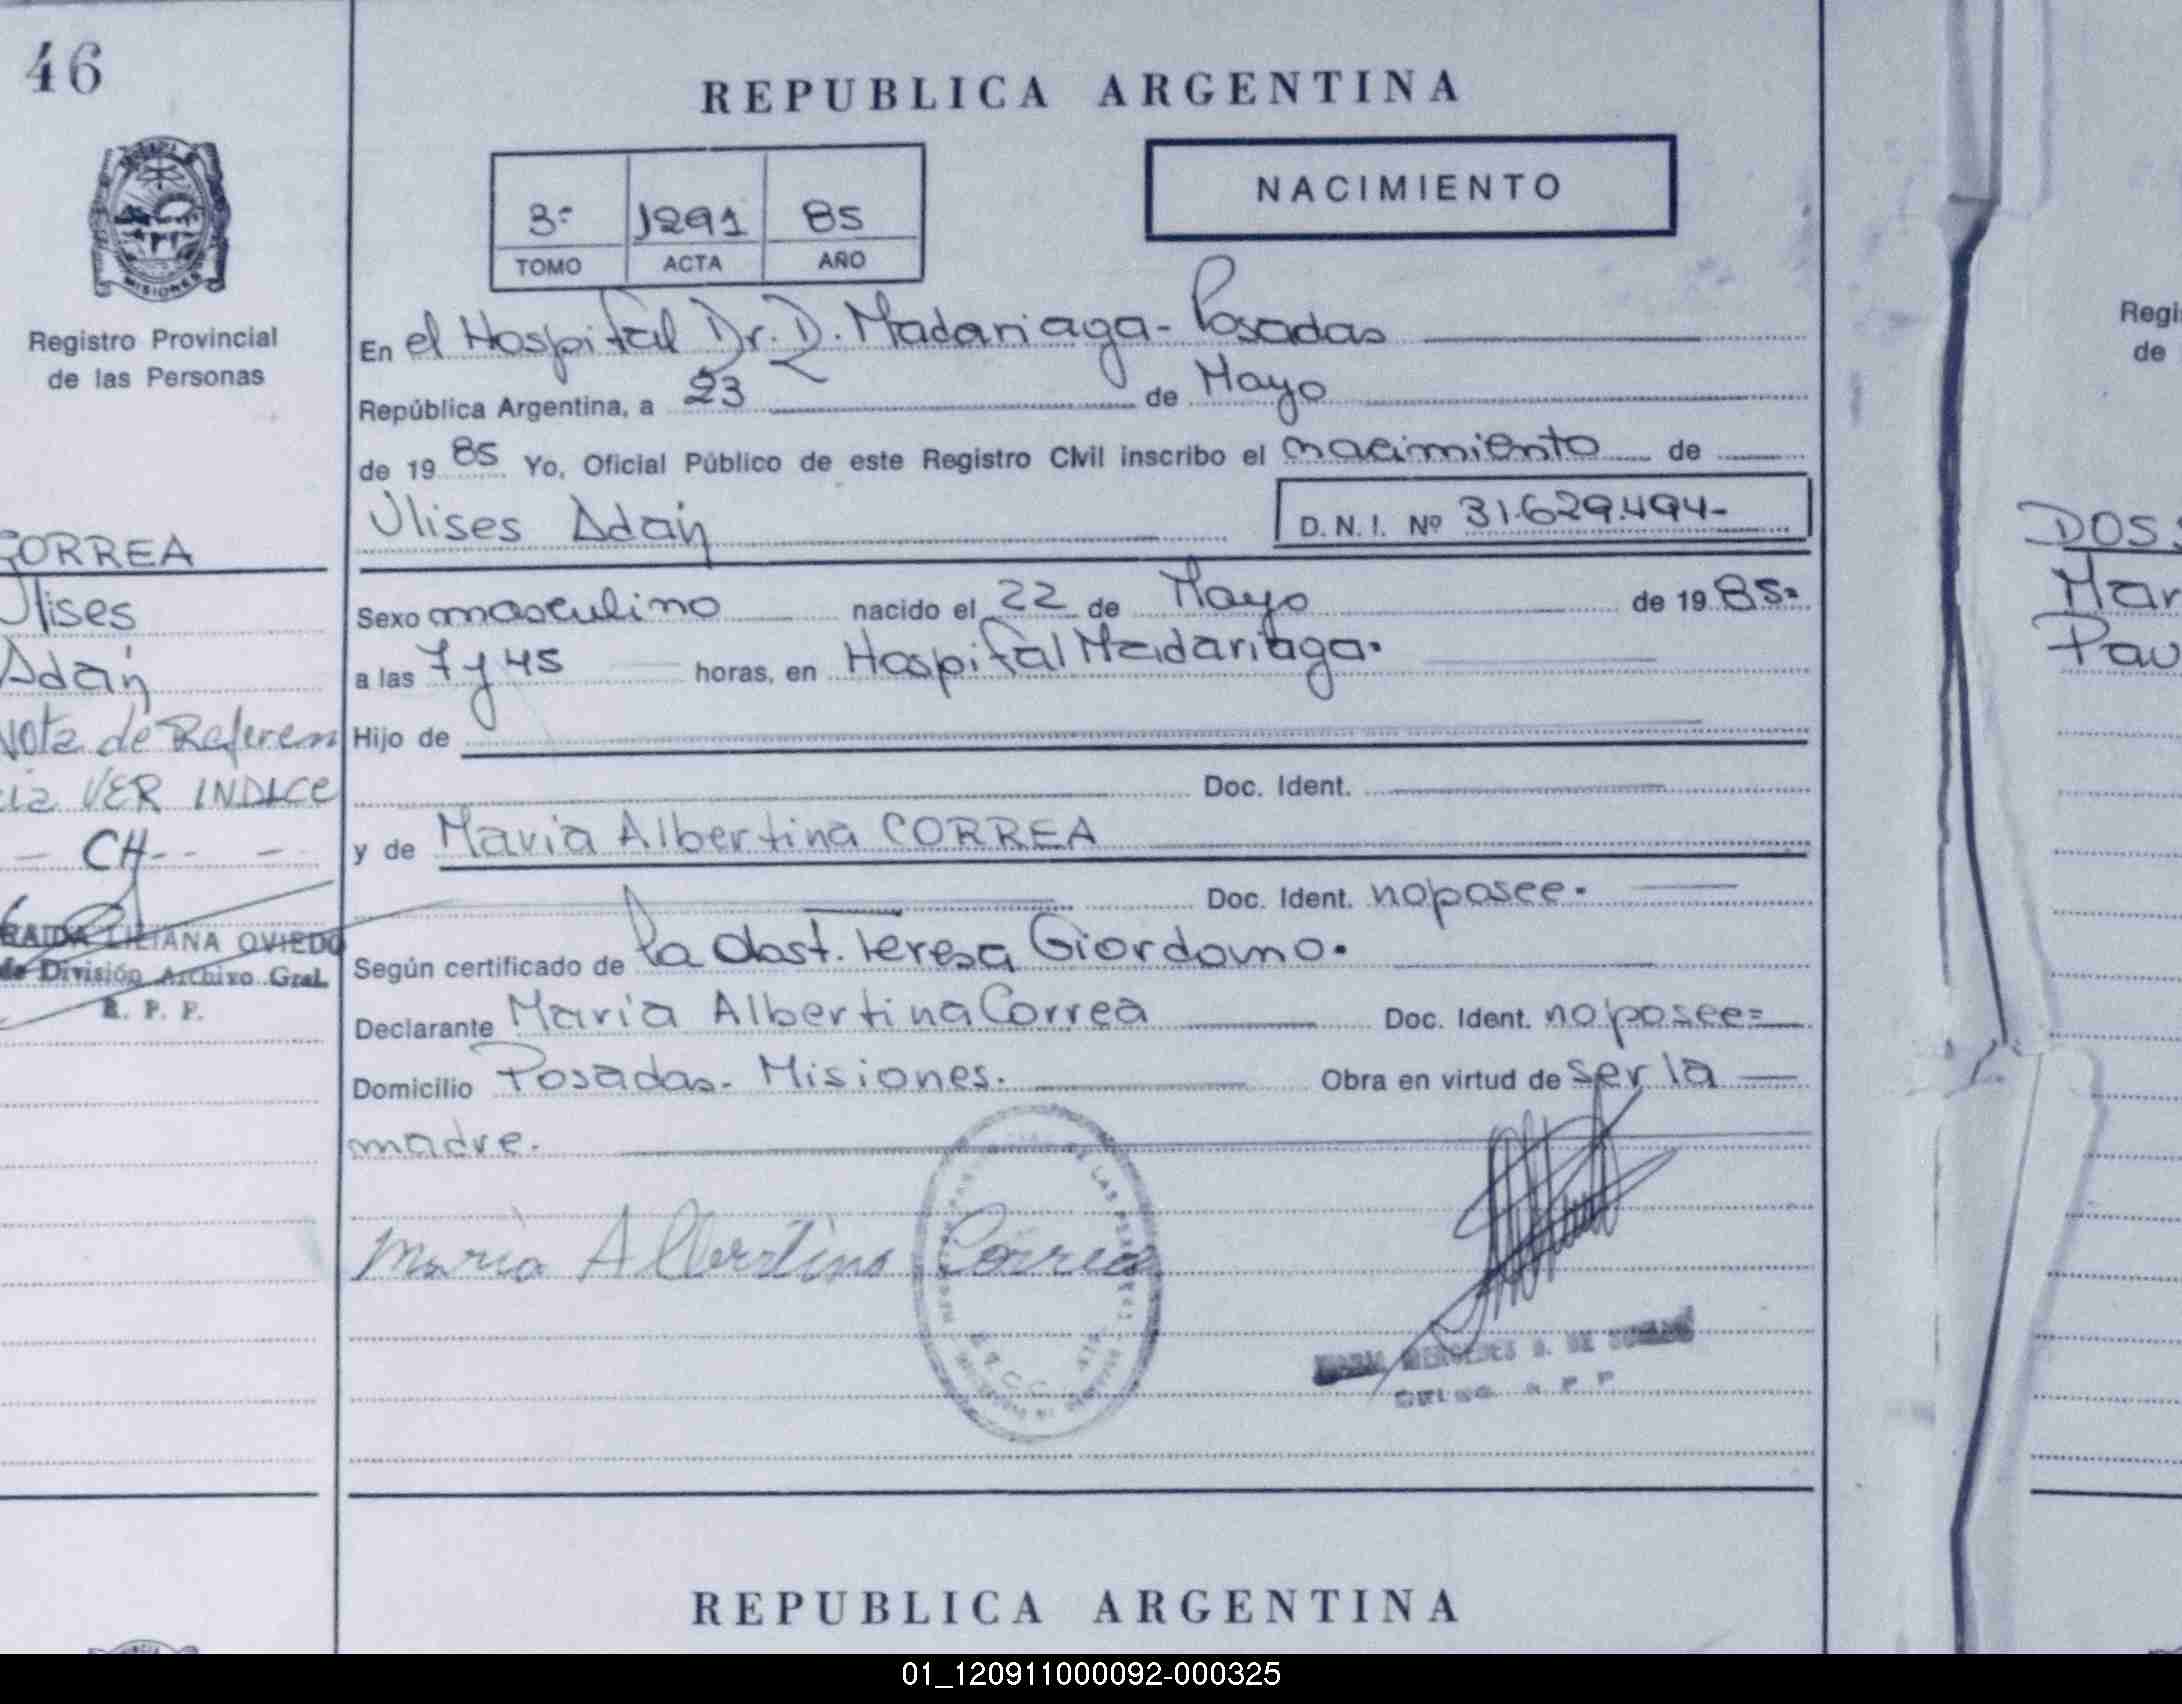 46
REPUBLICA ARGENTINA
NACIMIENTO
3º 1291 85
TOMO ACTA AÑO
MISIONES
Registro Provincial
de las Personas
En el Hospital Dr. D. Madariaga - Posadas
República Argentina, a 23 de Mayo
de 1985 Yo, Oficial Público de este Registro Civil inscribo el nacimiento de
Ulises Adán D. N. I. Nº 31.629.494-
CORREA
Ulises
Adán
Nota de Referen
cia VER INDICE
- CH - - -
LILIANA OVIEDO
de División Archivo Gral.
R. P. P.
Sexo masculino nacido el 22 de Mayo de 1985.
a las 7 y 45 horas, en Hospital Madariaga.
Hijo de
Doc. Ident.
y de Maria Albertina CORREA
Doc. Ident. no posee.
Según certificado de la obst. Teresa Giordano.
Declarante Maria Albertina Correa Doc. Ident. no posee=
Domicilio Posadas - Misiones. Obra en virtud de ser la
madre.
Maria Albertina Correa
DE LAS PERSONAS
MERCEDES
R P P
REPUBLICA ARGENTINA
Regi
de
DOSS
Mar
Pau
01_120911000092-000325